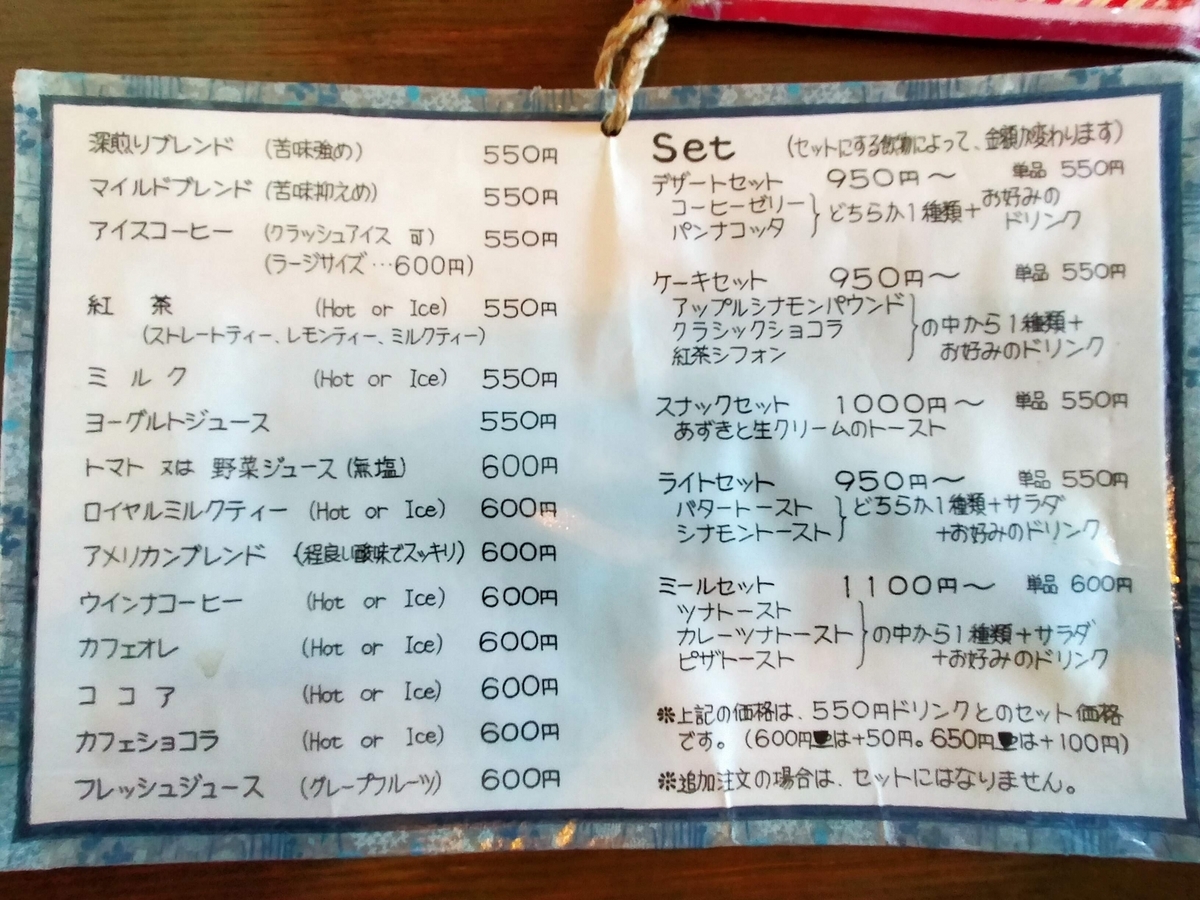 深煎りブレンド (苦味強め) 550円
マイルドブレンド (苦味抑えめ) 550円
アイスコーヒー (クラッシュアイス 可) 550円
(ラージサイズ…600円)
紅 茶 (Hot or Ice) 550円
(ストレートティー、レモンティー、ミルクティー)
ミ ル ク (Hot or Ice) 550円
ヨーグルトジュース 550円
トマト 又は 野菜ジュース (無塩) 600円
ロイヤルミルクティー (Hot or Ice) 600円
アメリカンブレンド (程良い酸味でスッキリ) 600円
ウインナコーヒー (Hot or Ice) 600円
カフェオレ (Hot or Ice) 600円
コ コ ア (Hot or Ice) 600円
カフェショコラ (Hot or Ice) 600円
フレッシュジュース (グレープフルーツ) 600円
Set (セットにする飲物によって、金額が変わります)
デザートセット 950円〜 単品 550円
コーヒーゼリー
パンナコッタ
どちらか1種類+お好みの
ドリンク
ケーキセット 950円〜 単品 550円
アップルシナモンパウンド
クラシックショコラ
紅茶シフォン
の中から1種類+
お好みのドリンク
スナックセット 1000円〜 単品 550円
あずきと生クリームのトースト
ライトセット 950円〜 単品 550円
バタートースト
シナモントースト
どちらか1種類+サラダ
+お好みのドリンク
ミールセット 1100円〜 単品 600円
ツナトースト
カレーツナトースト
ピザトースト
の中から1種類+サラダ
+お好みのドリンク
※上記の価格は、550円ドリンクとのセット価格
です。(600円☕は+50円。650円☕は+100円)
※追加注文の場合は、セットにはなりません。